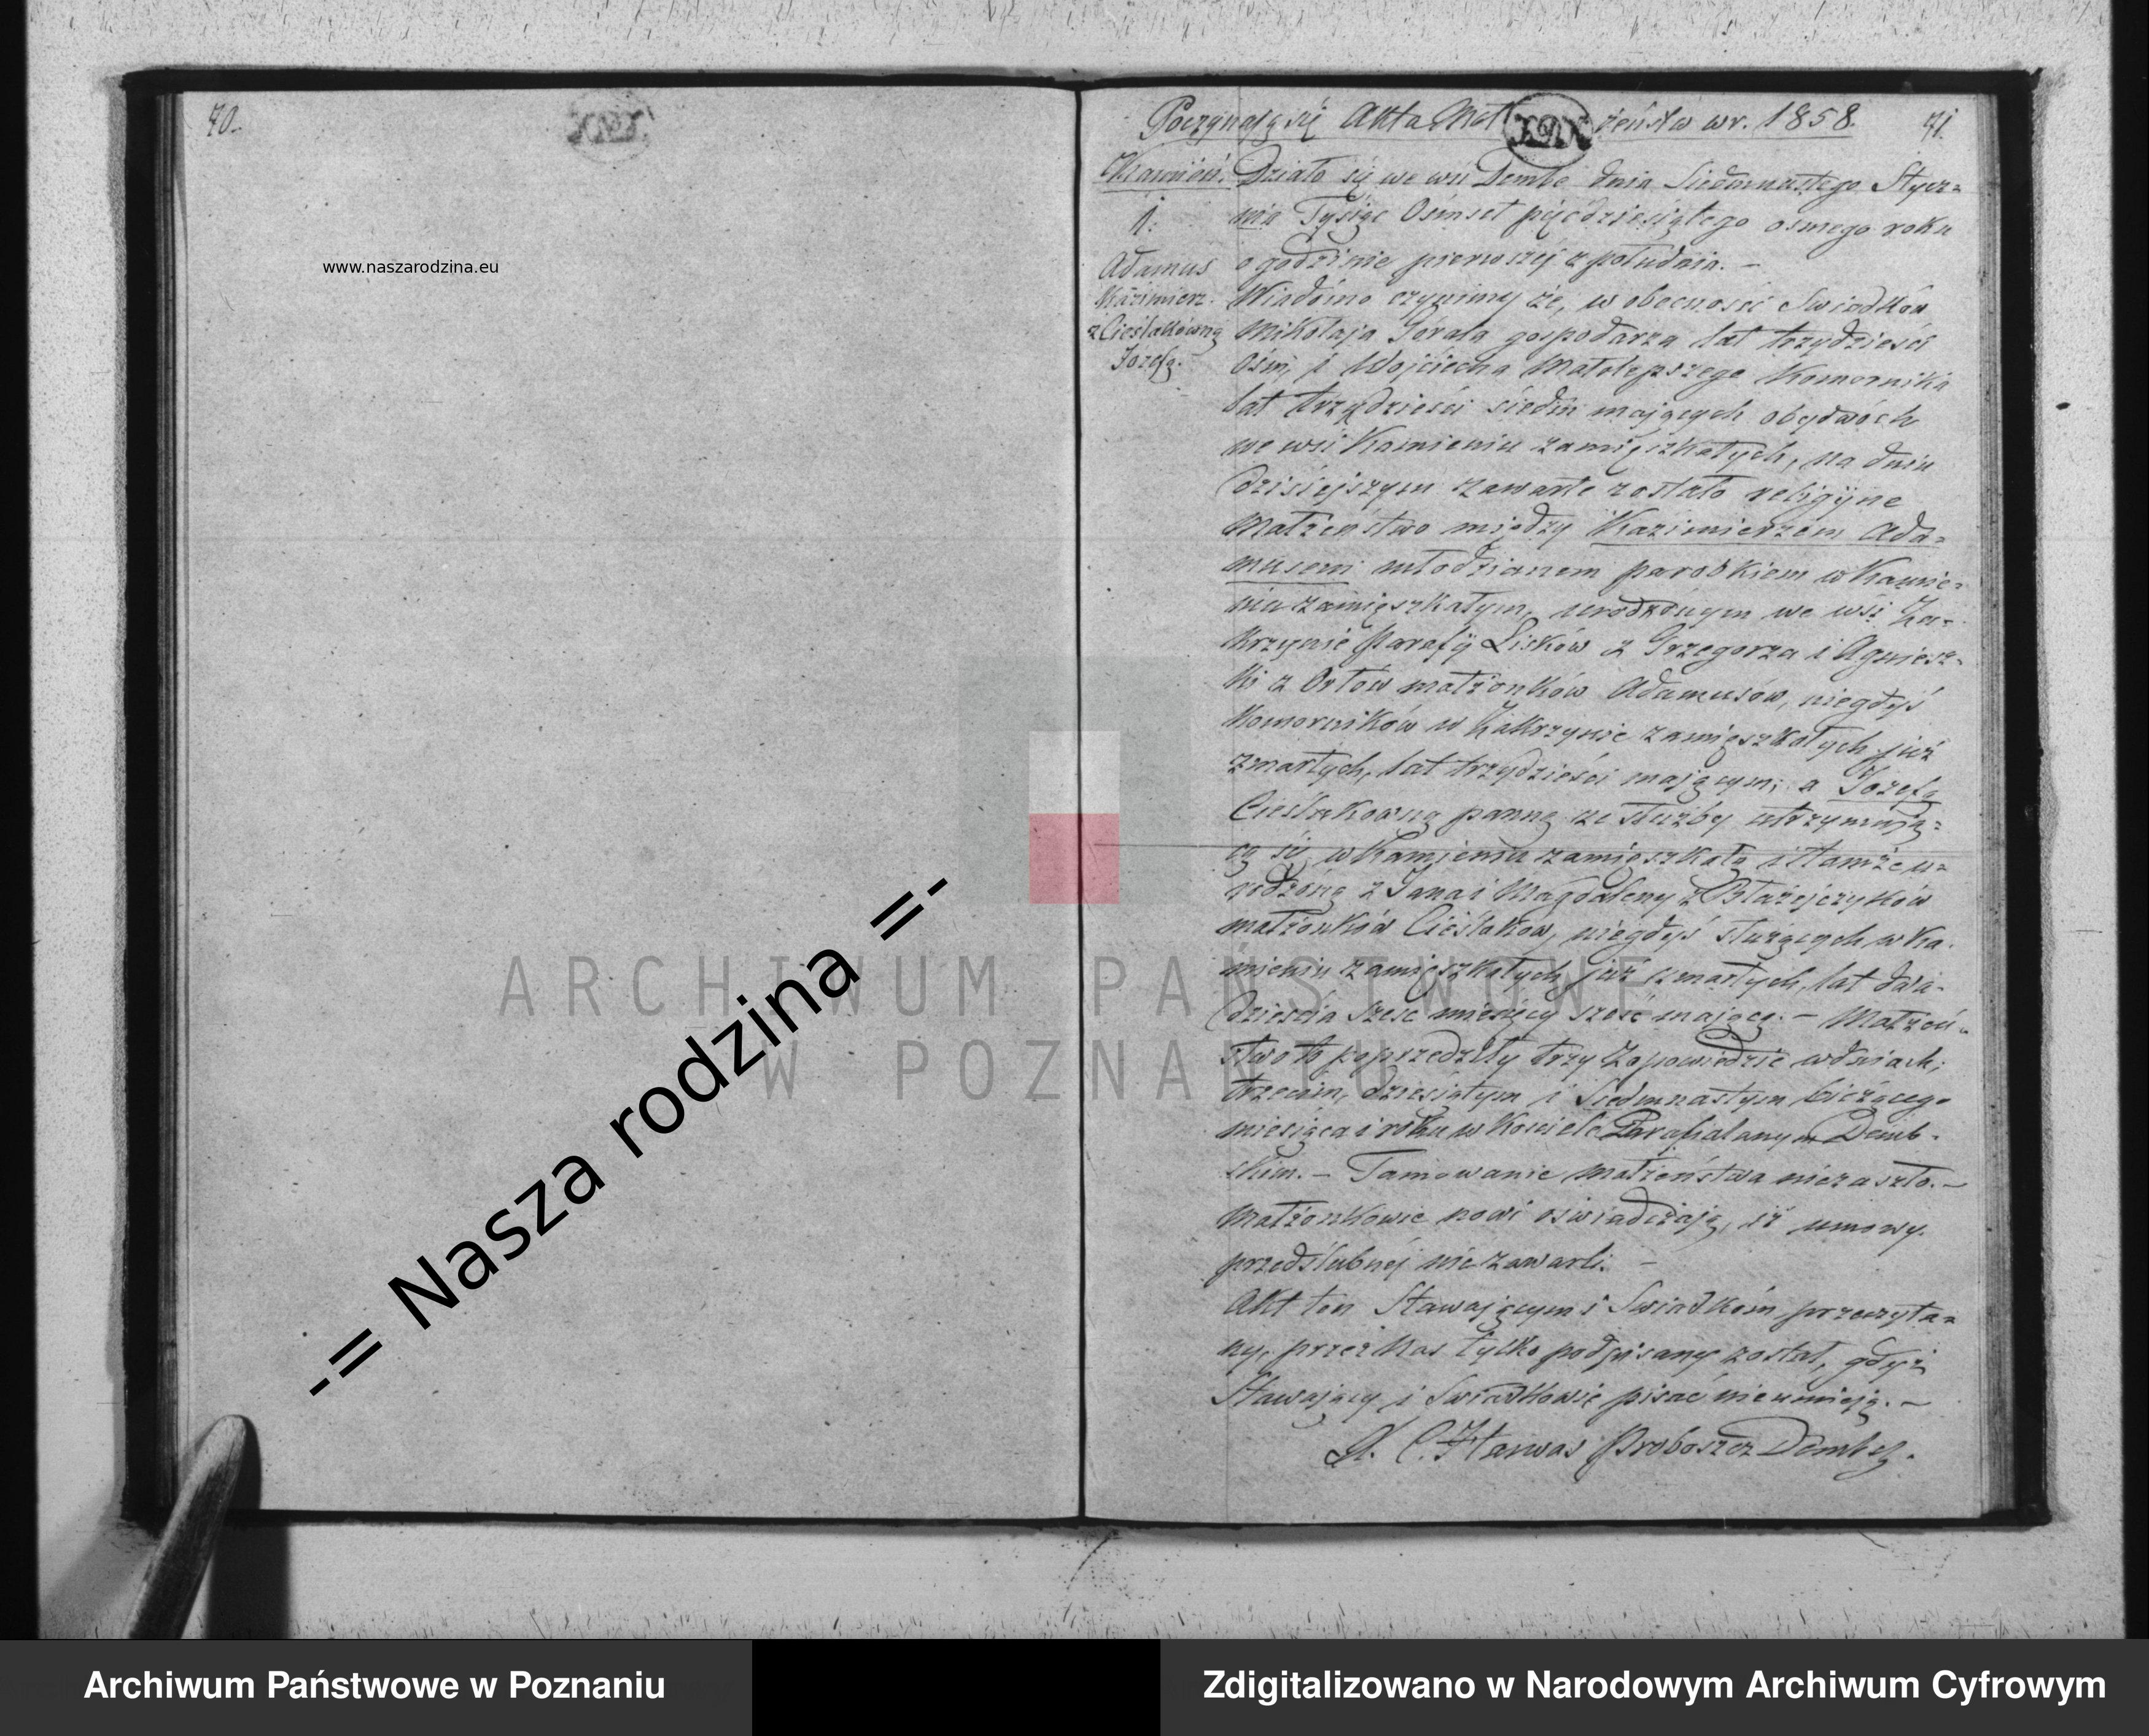 70.
www.naszarodzina.eu
-= Nasza rodzina =-
Poczynają się Akta Mał żeństw w r. 1858. 71.
Kamień.
1.
Adamus
Kazimierz
z Cieślakówną
Józefą.
Działo się we wsi Dembe dnia Siedmnastego Stycz=
nia Tysiąc Ośmset pięćdziesiątego osmego roku
o godzinie pierwszéj z południa. –
Wiadomo czyniemy że, w obecności Swiadków
Mikołaja Górala gospodarza lat trzydzieści
Ośm, i Wojciecha Małolepszego Komornika
lat trzydzieści siedm mających obydwóch
we wsi Kamieniu zamięszkałych, na dniu
dzisiejszym zawarte zostało religijne
Małżeństwo między Kazimierzem Ada=
musem młodzianem parobkiem w Kamie=
niu zamięszkałym, urodzonym we wsi Za=
krzynie Parafij Lisków z Grzegorza i Agniesz=
ki z Orłów małżonków Adamusów, niegdyś
Komorników w Zakrzynie zamięszkałych już
zmarłych, lat trzydzieści mającym; a Józefą
Cieślakówną panną ze służby utrzymują=
cą się w Kamieniu zamięszkałą i tamże u=
rodzoną z Jana i Magdaleny z Błażejczyków
małżonków Cieślaków, niegdyś służących w Ka=
mieniu zamięszkałych już zmarłych, lat dwa=
dzieścia sześć miesięcy sześć mającą. – Małżeń=
stwo to poprzedziły trzy Zapowiedzie w dniach:
trzecim, dziesiątym i Siedmnastym bieżącego
miesiąca i roku w Kościele Parafialnym Demb=
skim. – Tamowanie małżeństwa nie zaszło. –
Małżonkowie nowi oświadczają, iż umowy
przedślubnéj nie zawarli. –
Akt ten Stawającym i Swiadkom przeczyta=
ny, przez Nas tylko podpisany został, gdyż
Stawający i Swiadkowie pisać nie umieją. –
X. C. Harwas Proboszcz Dembsk.
ARCHIWUM PAŃSTWOWE
W POZNANIU
Archiwum Państwowe w Poznaniu
Zdigitalizowano w Narodowym Archiwum Cyfrowym